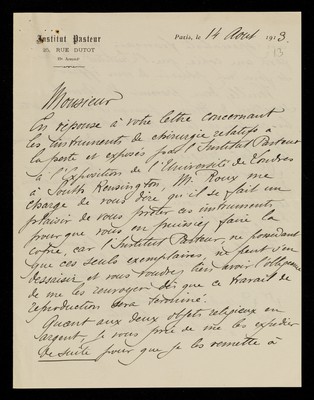 Institut Pasteur
25, RUE DUTOT
Paris, le 14 Aout 1913.
13
Monsieur
En réponse à votre lettre concernant
les instruments de chirurgie relatifs à
la peste et exposés par l'Institut Pasteur
à l'Exposition de l'Université de Londres
à South Kensington, Mr. Roux me
charge de vous dire qu'il se fait un
plaisir de vous prêter ces instruments
pour que vous en puissiez faire la
copie, car l'Institut Pasteur, ne possédant
que ces seuls exemplaires, ne peut s'en
dessaisir, et vous voudrez bien avoir l'obligeance
de me les renvoyer dès que ce travail de
reproduction sera terminé.
Quant aux deux objets religieux en
argent, je vous prie de me les expédier
de suite pour que je les remette à